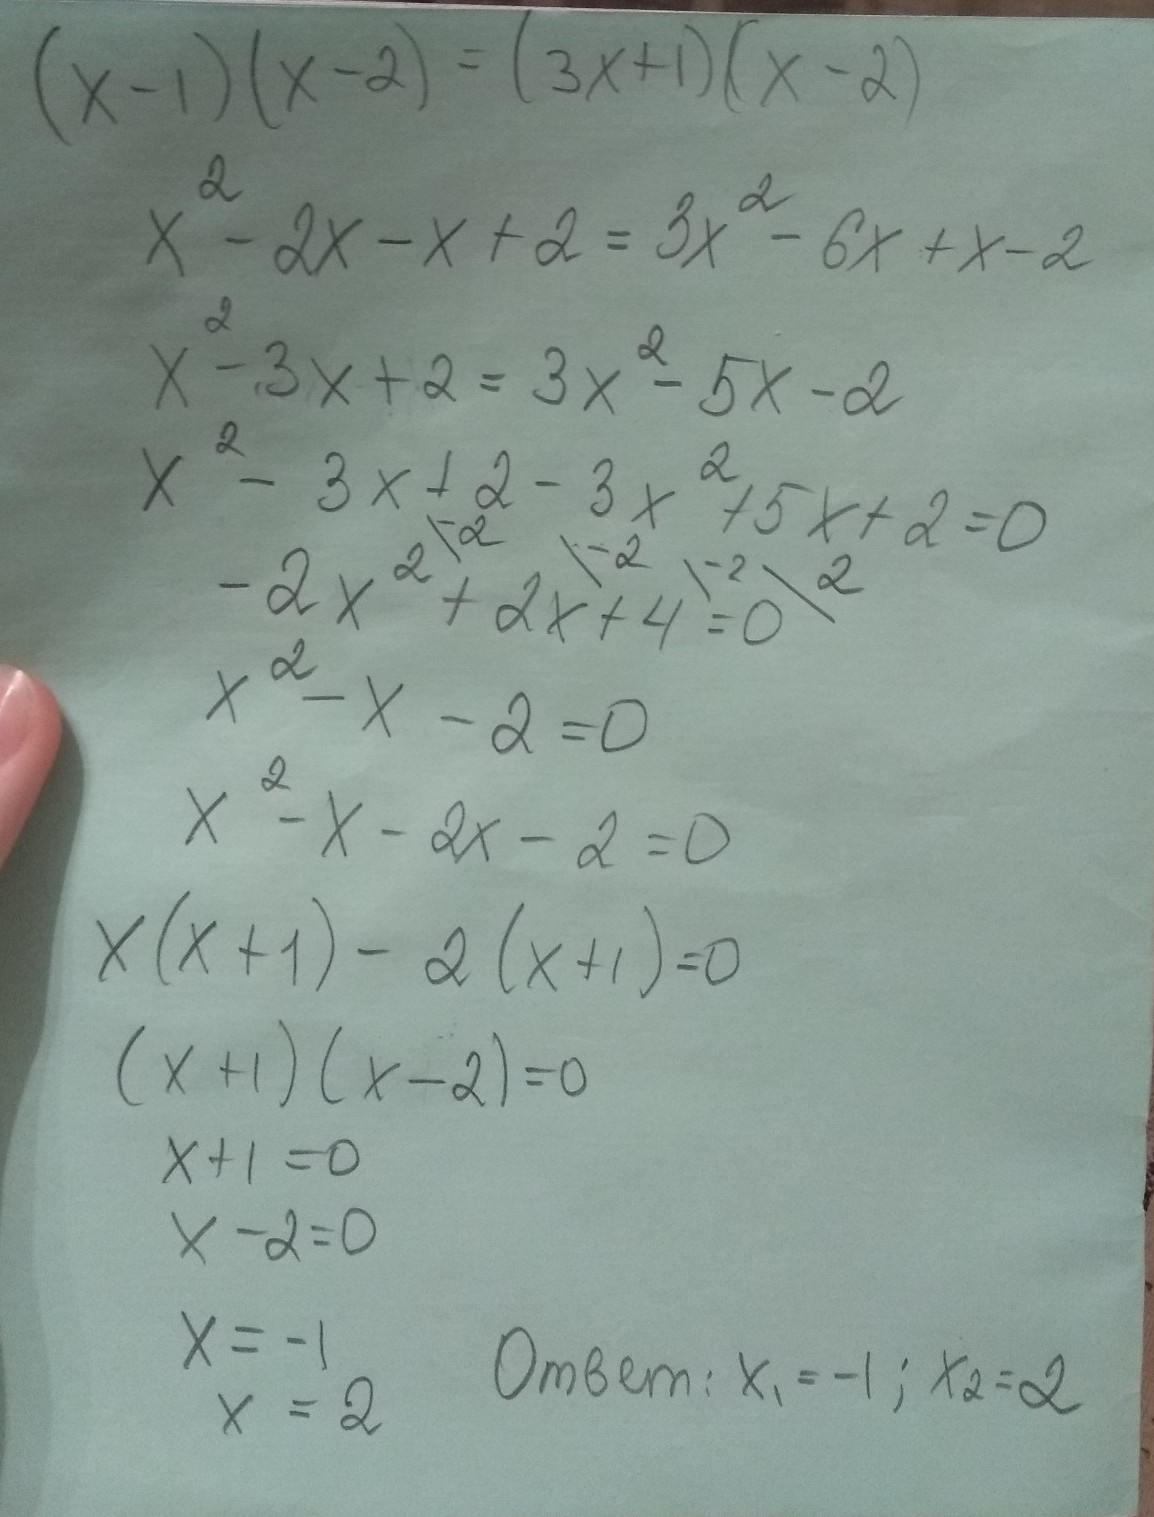 (x-1)(x-2)=(3x+1)(x-2)
x²-2x-x+2=3x²-6x+x-2
x²-3x+2=3x²-5x-2
x²-3x+2-3x²+5x+2=0
\-2 \-2 \-2 \2
-2x²+2x+4=0
x²-x-2=0
x²-x-2x-2=0
x(x+1)-2(x+1)=0
(x+1)(x-2)=0
x+1=0
x-2=0
x=-1
x=2
Ответ: x₁=-1; x₂=2